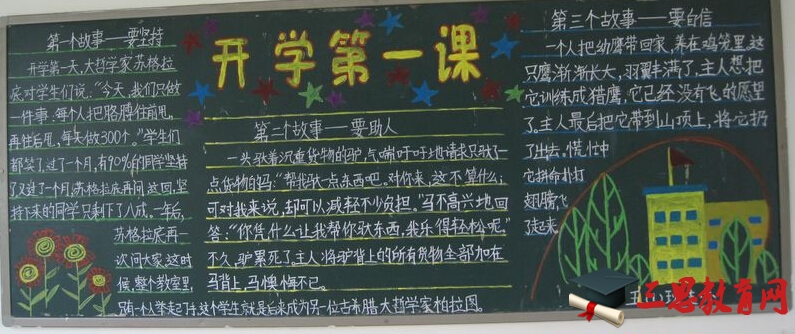 开学第一课
第一个故事——要坚持
开学第一天,大哲学家苏格拉
底对学生们说:“今天,我们只做
一件事:每个人把胳膊往前甩,
再往后甩,每天做300个。”学生们
都笑了,过了一个月,有90%的同学坚持
了,又过了一个月,苏格拉底再问这回,坚
持下来的同学只剩下了八成。一年后,
苏格拉底再一
次问大家,这时
候,整个教室里,
只有一个人举起了手,这个学生就是后来成为另一位古希腊大哲学家柏拉图。
第二个故事——要助人
一头驮着沉重货物的驴,气喘吁吁地请求只驮了一
点货物的马:“帮我驮一点东西吧。对你来,这不算什么;
可对我来说,却可以减轻不少负担。”马不高兴地回
答:“你凭什么让我帮你驮东西,我乐得轻松呢。”
不久,驴累死了,主人将驴背上的所有货物全部加在
马背上,马懊悔不已。
第三个故事——要自信
一个人把幼鹰带回家,养在鸡笼里,这
只鹰渐渐长大,羽翼丰满了,主人想把
它训练成猎鹰,它已经没有飞的愿望
了。主人最后把它带到山顶上,将它扔
了出去。慌忙中
它拼命扑打
翅膀,飞
了起来。
三思教育网